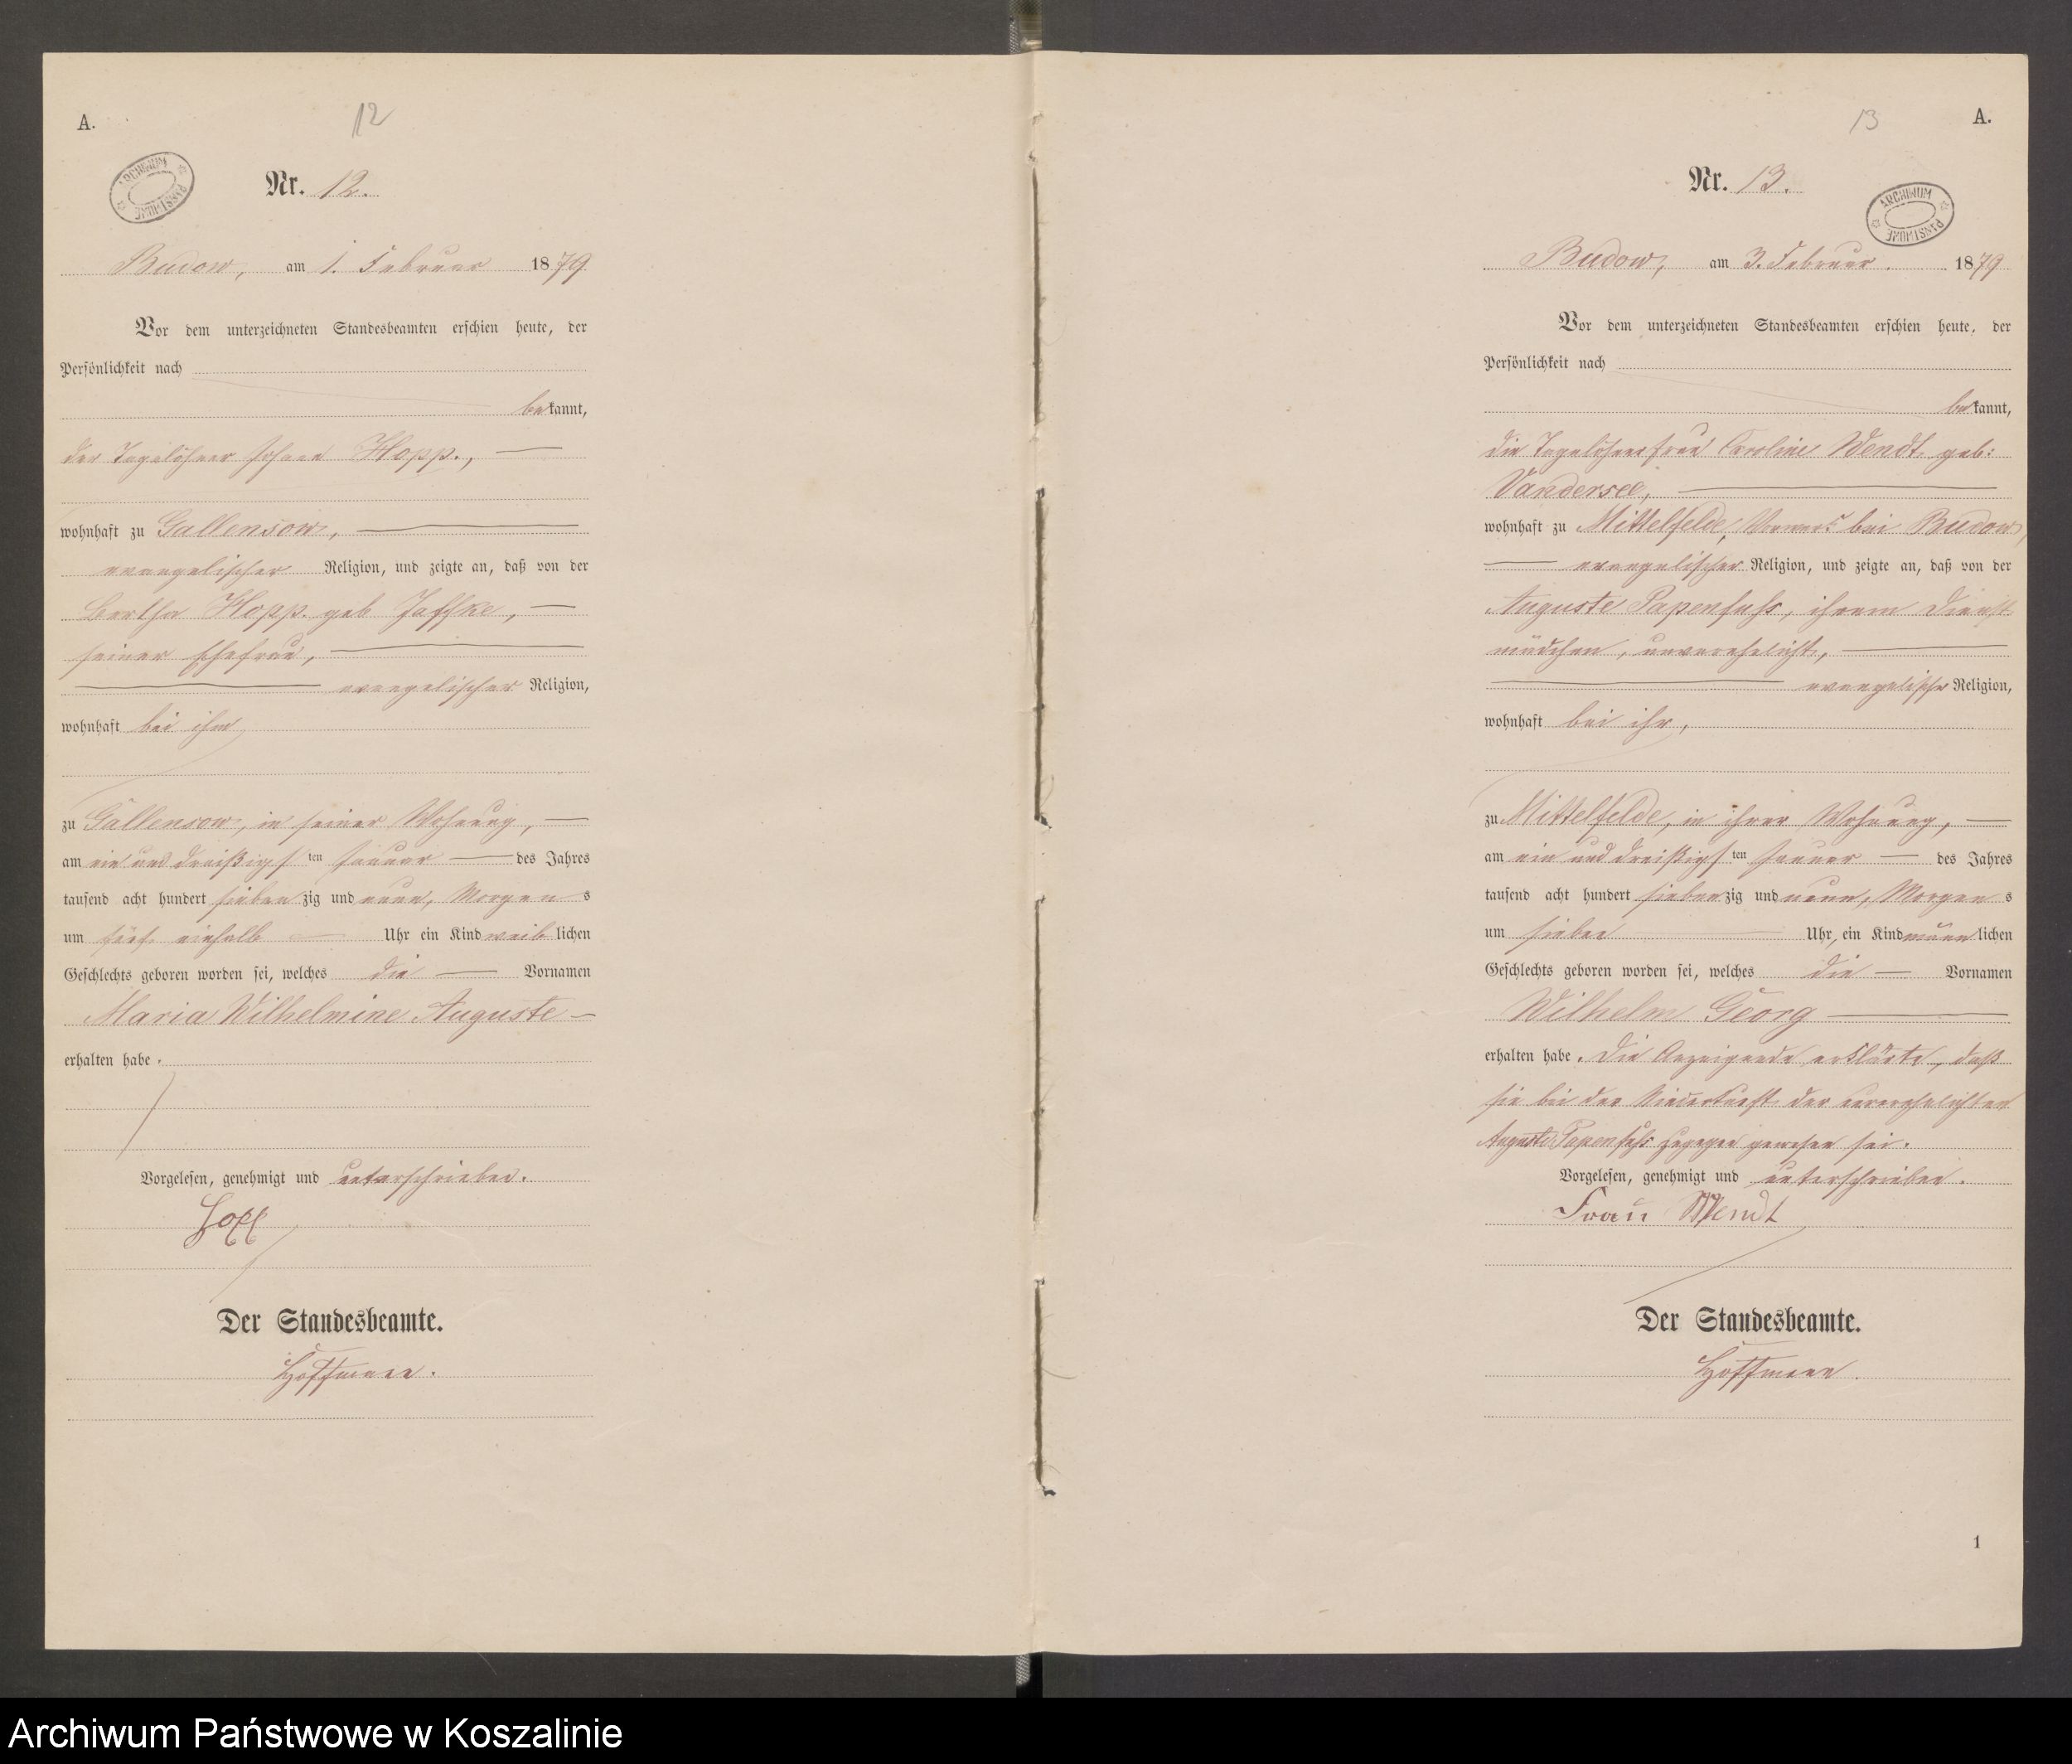 A.
12
ARCHIWUM PAŃSTWOWE
Nr. 12.
Budow, am 1. Februar 1879
Vor dem unterzeichneten Standesbeamten erschien heute, der
Persönlichkeit nach
bekannt,
der Tagelöhner Johann Hopp.,
wohnhaft zu Gallensow,
evangelischer Religion, und zeigte an, daß von der
Bertha Hopp. geb Jaffke,
seiner Ehefrau,
evangelischer Religion,
wohnhaft bei ihm
zu Gallensow, in seiner Wohnung,
am ein und dreißigsten Januar des Jahres
tausend acht hundert siebenzig und neun, Morgens
um fünf einhalb Uhr ein Kind weiblichen
Geschlechts geboren worden sei, welches die Vornamen
Maria Wilhelmine Auguste
erhalten habe.
Vorgelesen, genehmigt und unterschrieben.
Hopp
Der Standesbeamte.
Hoffmann.
13
A.
Nr. 13.
ARCHIWUM PAŃSTWOWE
Budow, am 3. Februar. 1879
Vor dem unterzeichneten Standesbeamten erschien heute, der
Persönlichkeit nach
bekannt,
die Tagelöhnerfrau Caroline Wendt geb:
Vandersee,
wohnhaft zu Mittelfelde, Vorwerk bei Budow,
evangelischer Religion, und zeigte an, daß von der
Auguste Papenfuhs, ihrem Dienst
mädchen, unverehelicht,
evangelischer Religion,
wohnhaft bei ihr,
zu Mittelfelde, in ihrer Wohnung,
am ein und dreißigsten Januar des Jahres
tausend acht hundert siebenzig und neun, Morgens
um sieben Uhr, ein Kind männlichen
Geschlechts geboren worden sei, welches die Vornamen
Wilhelm Georg
erhalten habe. Die Anzeigende erklärte, daß
sie bei der Niederkunft der unverehelichten
Auguste Papenfuhs zugegen gewesen sei.
Vorgelesen, genehmigt und unterschrieben.
Frau Wendt
Der Standesbeamte.
Hoffmann.
1
Archiwum Państwowe w Koszalinie